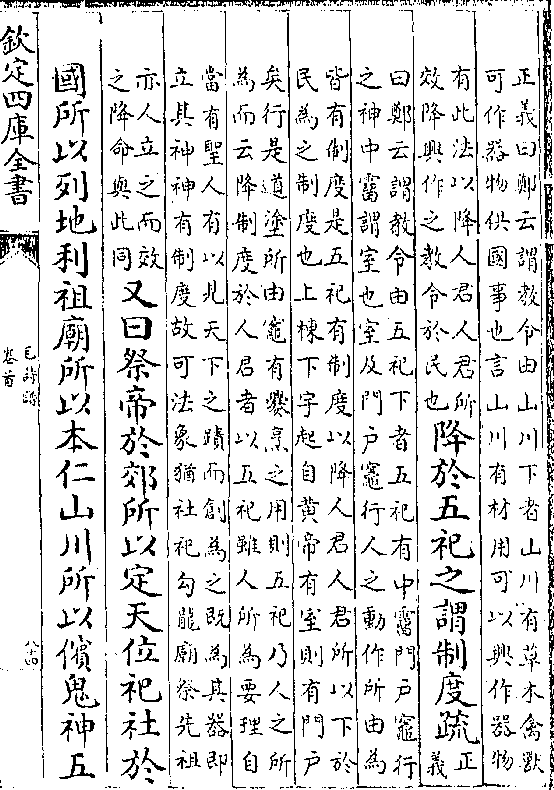 正義曰鄭云謂教令由山川下者山川有草木禽獸
可作器物供國事也言山川有材用可以興作器物
有此法以降人君人君所
效降興作之教令於民也
降於五祀之謂制度疏
正
義
曰鄭云謂教令由五祀下者五祀有中霤門戶竈行
之神中霤謂室也室及門戶竈行人之動作所由為
皆有制度是五祀有制度以降人君人君所以下於
民為之制度也上棟下宇起自黃帝有室則有門戶
矣行是道塗所由竈有爨烹之用則五祀乃人之所
為而云降制度於人君者以五祀雖人所為要理自
當有聖人有以見天下之蹟而創為之既為其器即
立其神神有制度故可法象猶社祀勾龍廟祭先祖
亦人立之而效
之降命與此同
又曰祭帝於郊所以定天位祀社於
國所以列地利祖廟所以本仁山川所以儐鬼神五
欽定四庫全書
毛詩譜
卷首